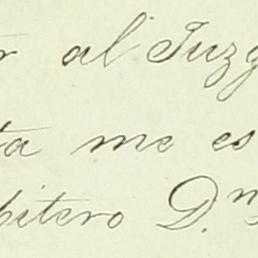 r al Juzg
ta me es
bitero D.n